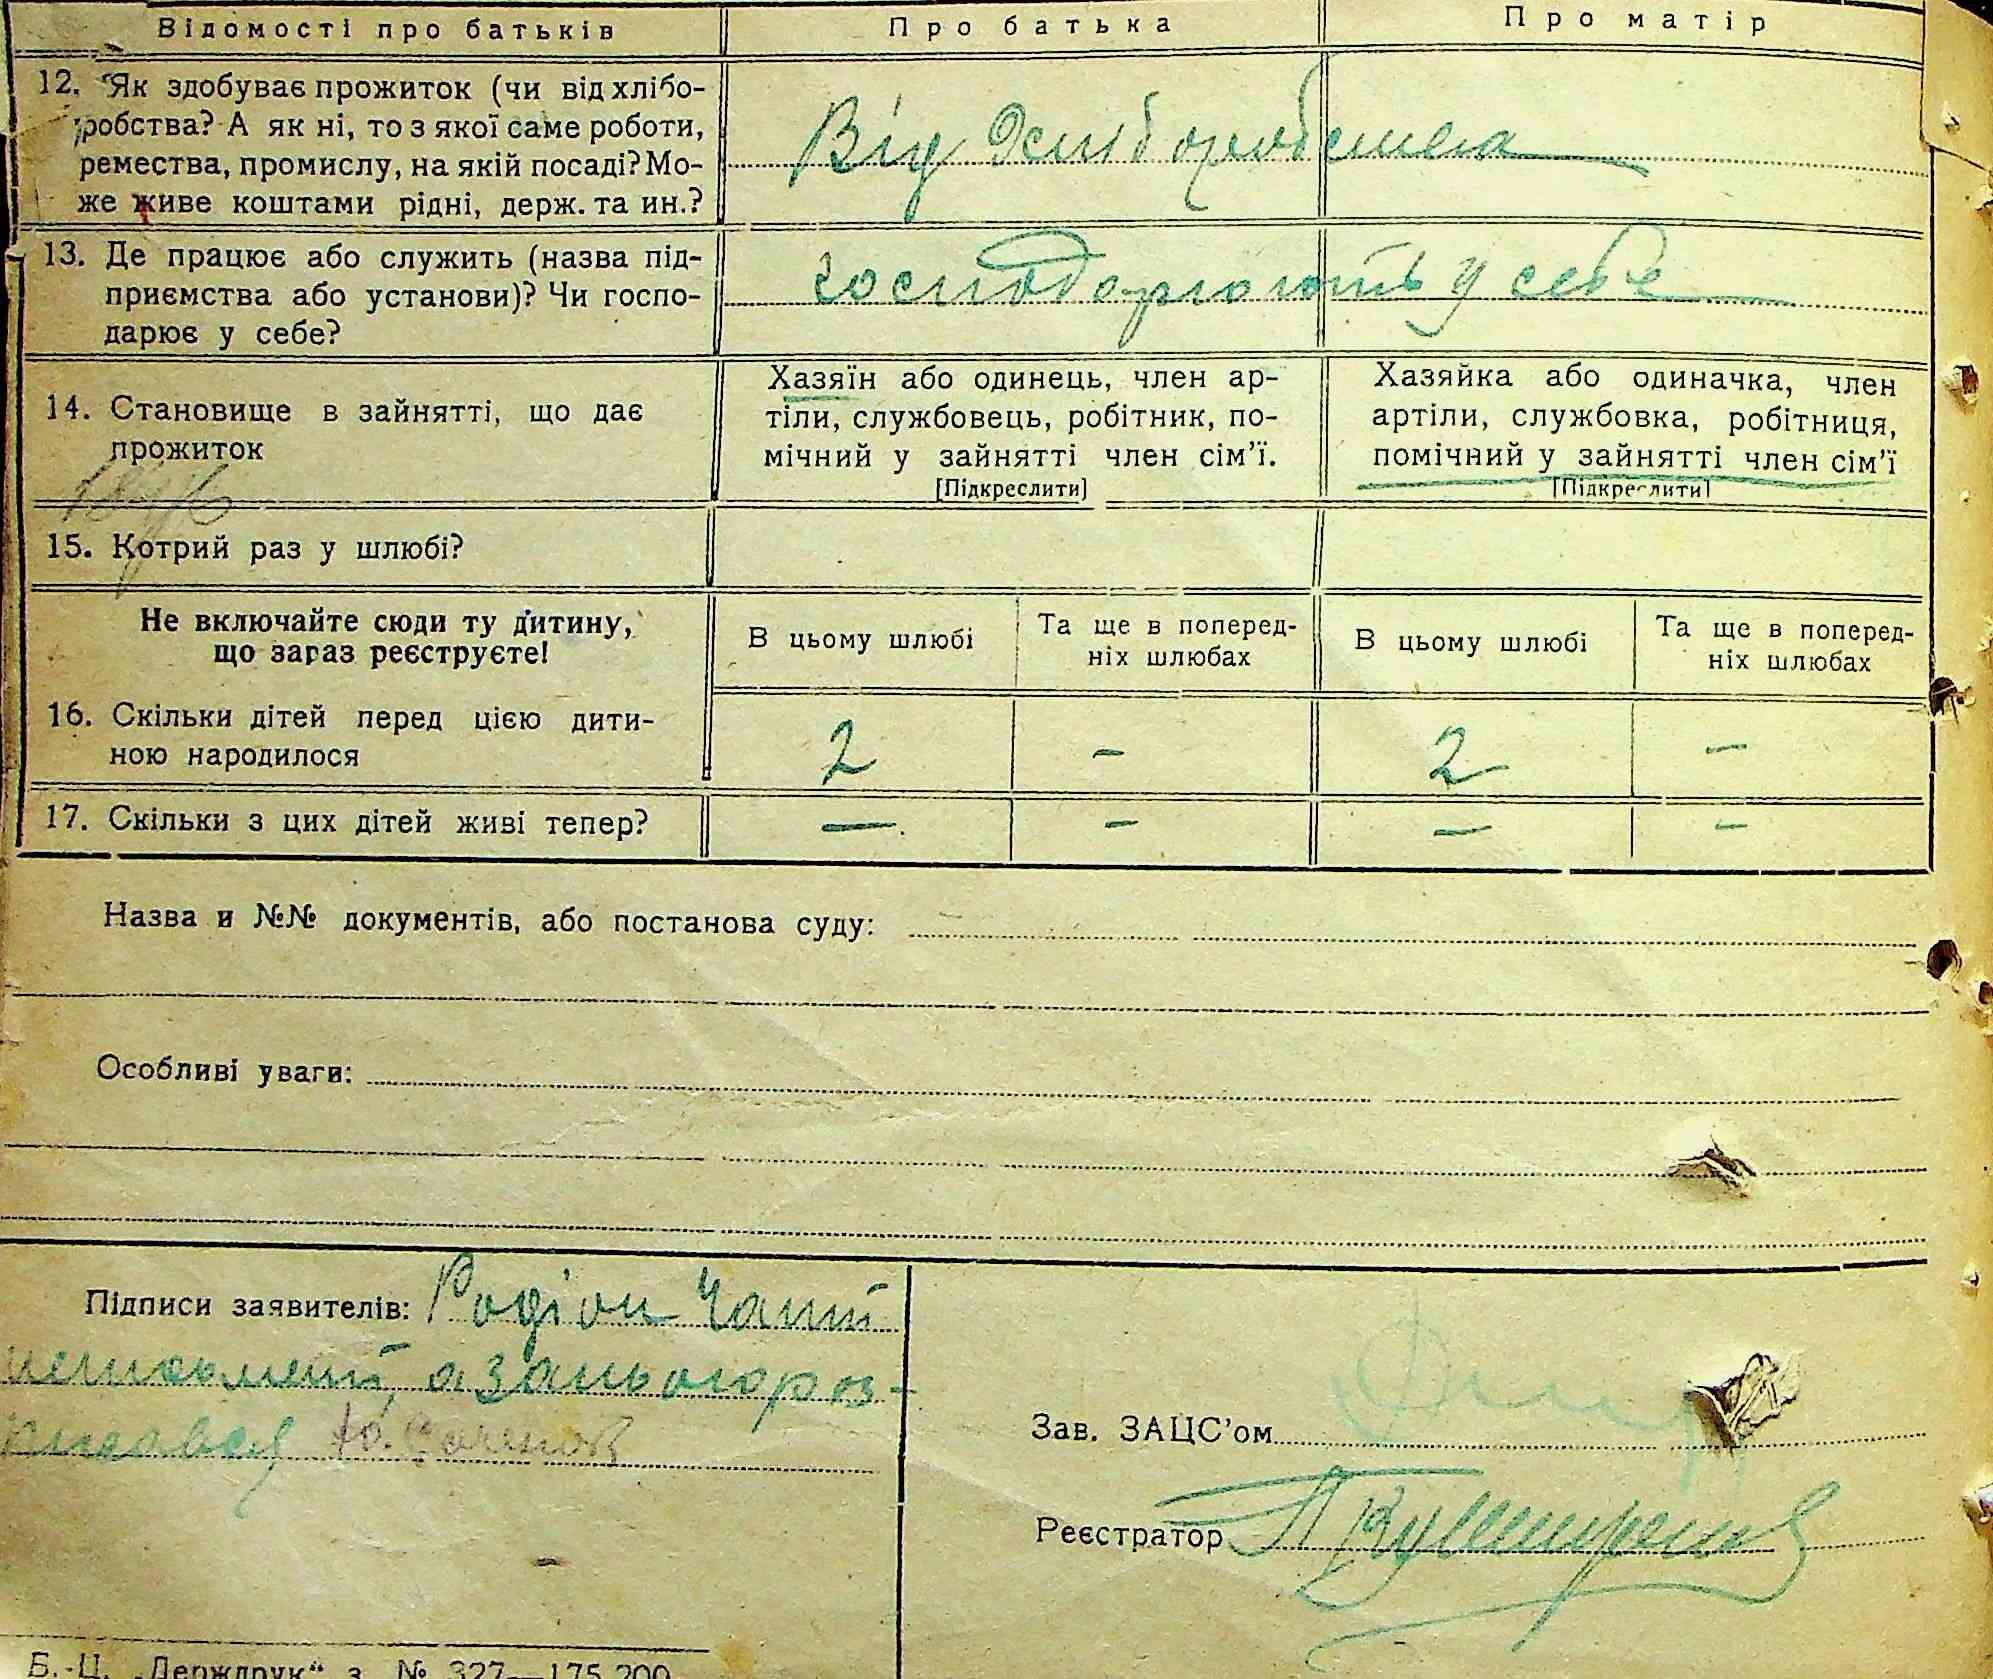 Відомості про батьків Про батька Про матір
12. Як здобуває прожиток (чи від хлібо-
робства? А як ні, то з якої саме роботи,
ремества, промислу, на якій посаді? Мо-
же живе коштами рідні, держ. та ин.?
Від хліборобства
13. Де працює або служить (назва під-
приємства або установи)? Чи госпо-
дарює у себе?
господарюють у себе
14. Становище в зайнятті, що дає
прожиток
Хазяїн або одинець, член ар-
тіли, службовець, робітник, по-
мічний у зайнятті член сім'ї.
[Підкреслити]
Хазяйка або одиначка, член
артіли, службовка, робітниця,
помічний у зайнятті член сім'ї
[Підкреслити]
15. Котрий раз у шлюбі?
Не включайте сюди ту дитину,
що зараз реєструєте!
В цьому шлюбі
Та ще в поперед-
ніх шлюбах
В цьому шлюбі
Та ще в поперед-
ніх шлюбах
16. Скільки дітей перед цією дити-
ною народилося
2 - 2 -
17. Скільки з цих дітей живі тепер?
- - - -
Назва и №№ документів, або постанова суду:
Особливі уваги:
Підписи заявителів: Родіон Чапт
неписьмений, а за нього роз-
писався
Зав. ЗАЦС'ом
Реєстратор
Б.-Ц. „Держдрук“ з. № 327—175.200